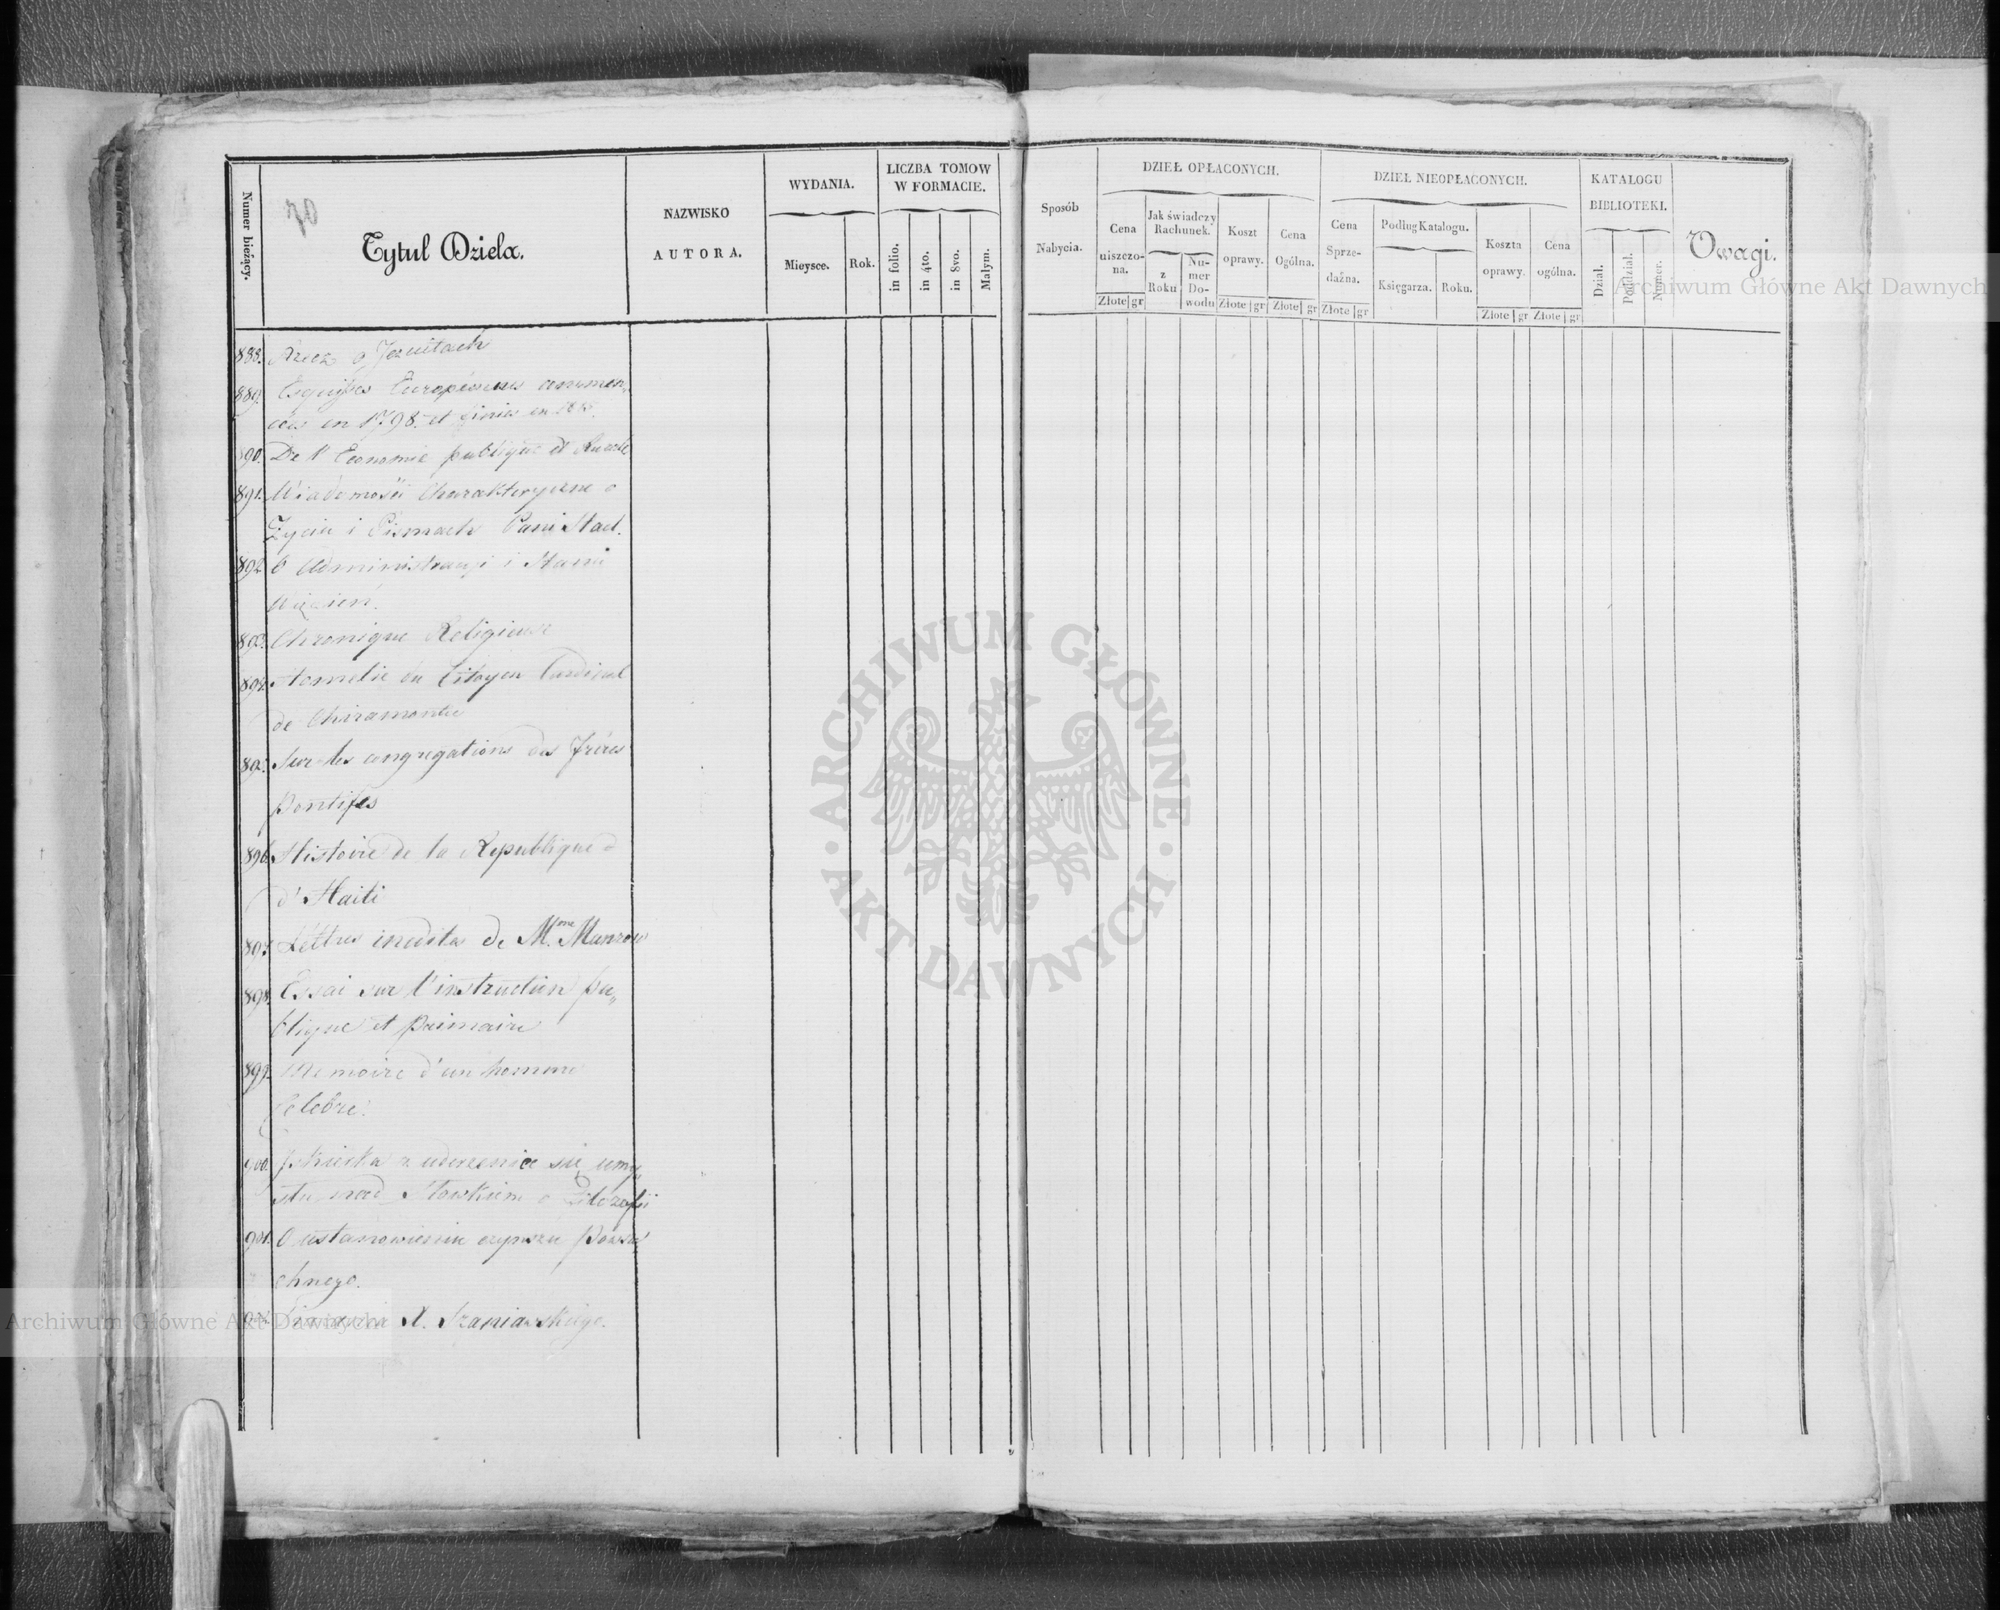 70
Numer bieżący.
Tytuł Dzieła.
NAZWISKO
AUTORA.
WYDANIA.
Mieysce. Rok.
LICZBA TOMOW
W FORMACIE.
in folio. in 4to. in 8vo. Małym.
Sposób
Nabycia.
DZIEŁ OPŁACONYCH.
Cena
uiszczo-
na.
Złote gr
Jak świadczy
Rachunek.
z
Roku
Nu-
mer
Do-
wodu
Koszt
oprawy.
Złote gr
Cena
Ogólna.
Złote gr
DZIEŁ NIEOPŁACONYCH.
Cena
Sprze-
daźna.
Złote gr
Podług Katalogu.
Księgarza. Roku.
Koszta
oprawy.
Złote gr
Cena
ogólna.
Złote gr
KATALOGU
BIBLIOTEKI.
Dział. Poddział. Numer.
Uwagi.
888. Rzecz o Jezuitach
889. Esquisses Européennes commen„
cées en 1798. et finies en
890. De l'Economie publique et Rurale
891. Wiadomość Charakteryczne o
Życiu i Pismach Pani Stael.
892 O Administracyi i Stanie
Więzień.
893. Chronique Religieuse
894. Homelie du Citoyen Cardinal
de Chiramonte
895. Sur les congregations des frères
pontifes
896. Histoire de la Republique
d'Haiti
897. Lettres inedites de Mme.
898. Essai sur l'instruction pu„
blique et primaire
899. Memoire d'un homme
Celebre.
900. z uderzenia się umy„
słu nad Stowkiem o Filozofii
901. O ustanowieniu czynszu powsze
chnego.
902. X. Szaniawskiego.
ARCHIWUM GŁÓWNE
AKT DAWNYCH
Archiwum Główne Akt Dawnych
Archiwum Główne Akt Dawnych